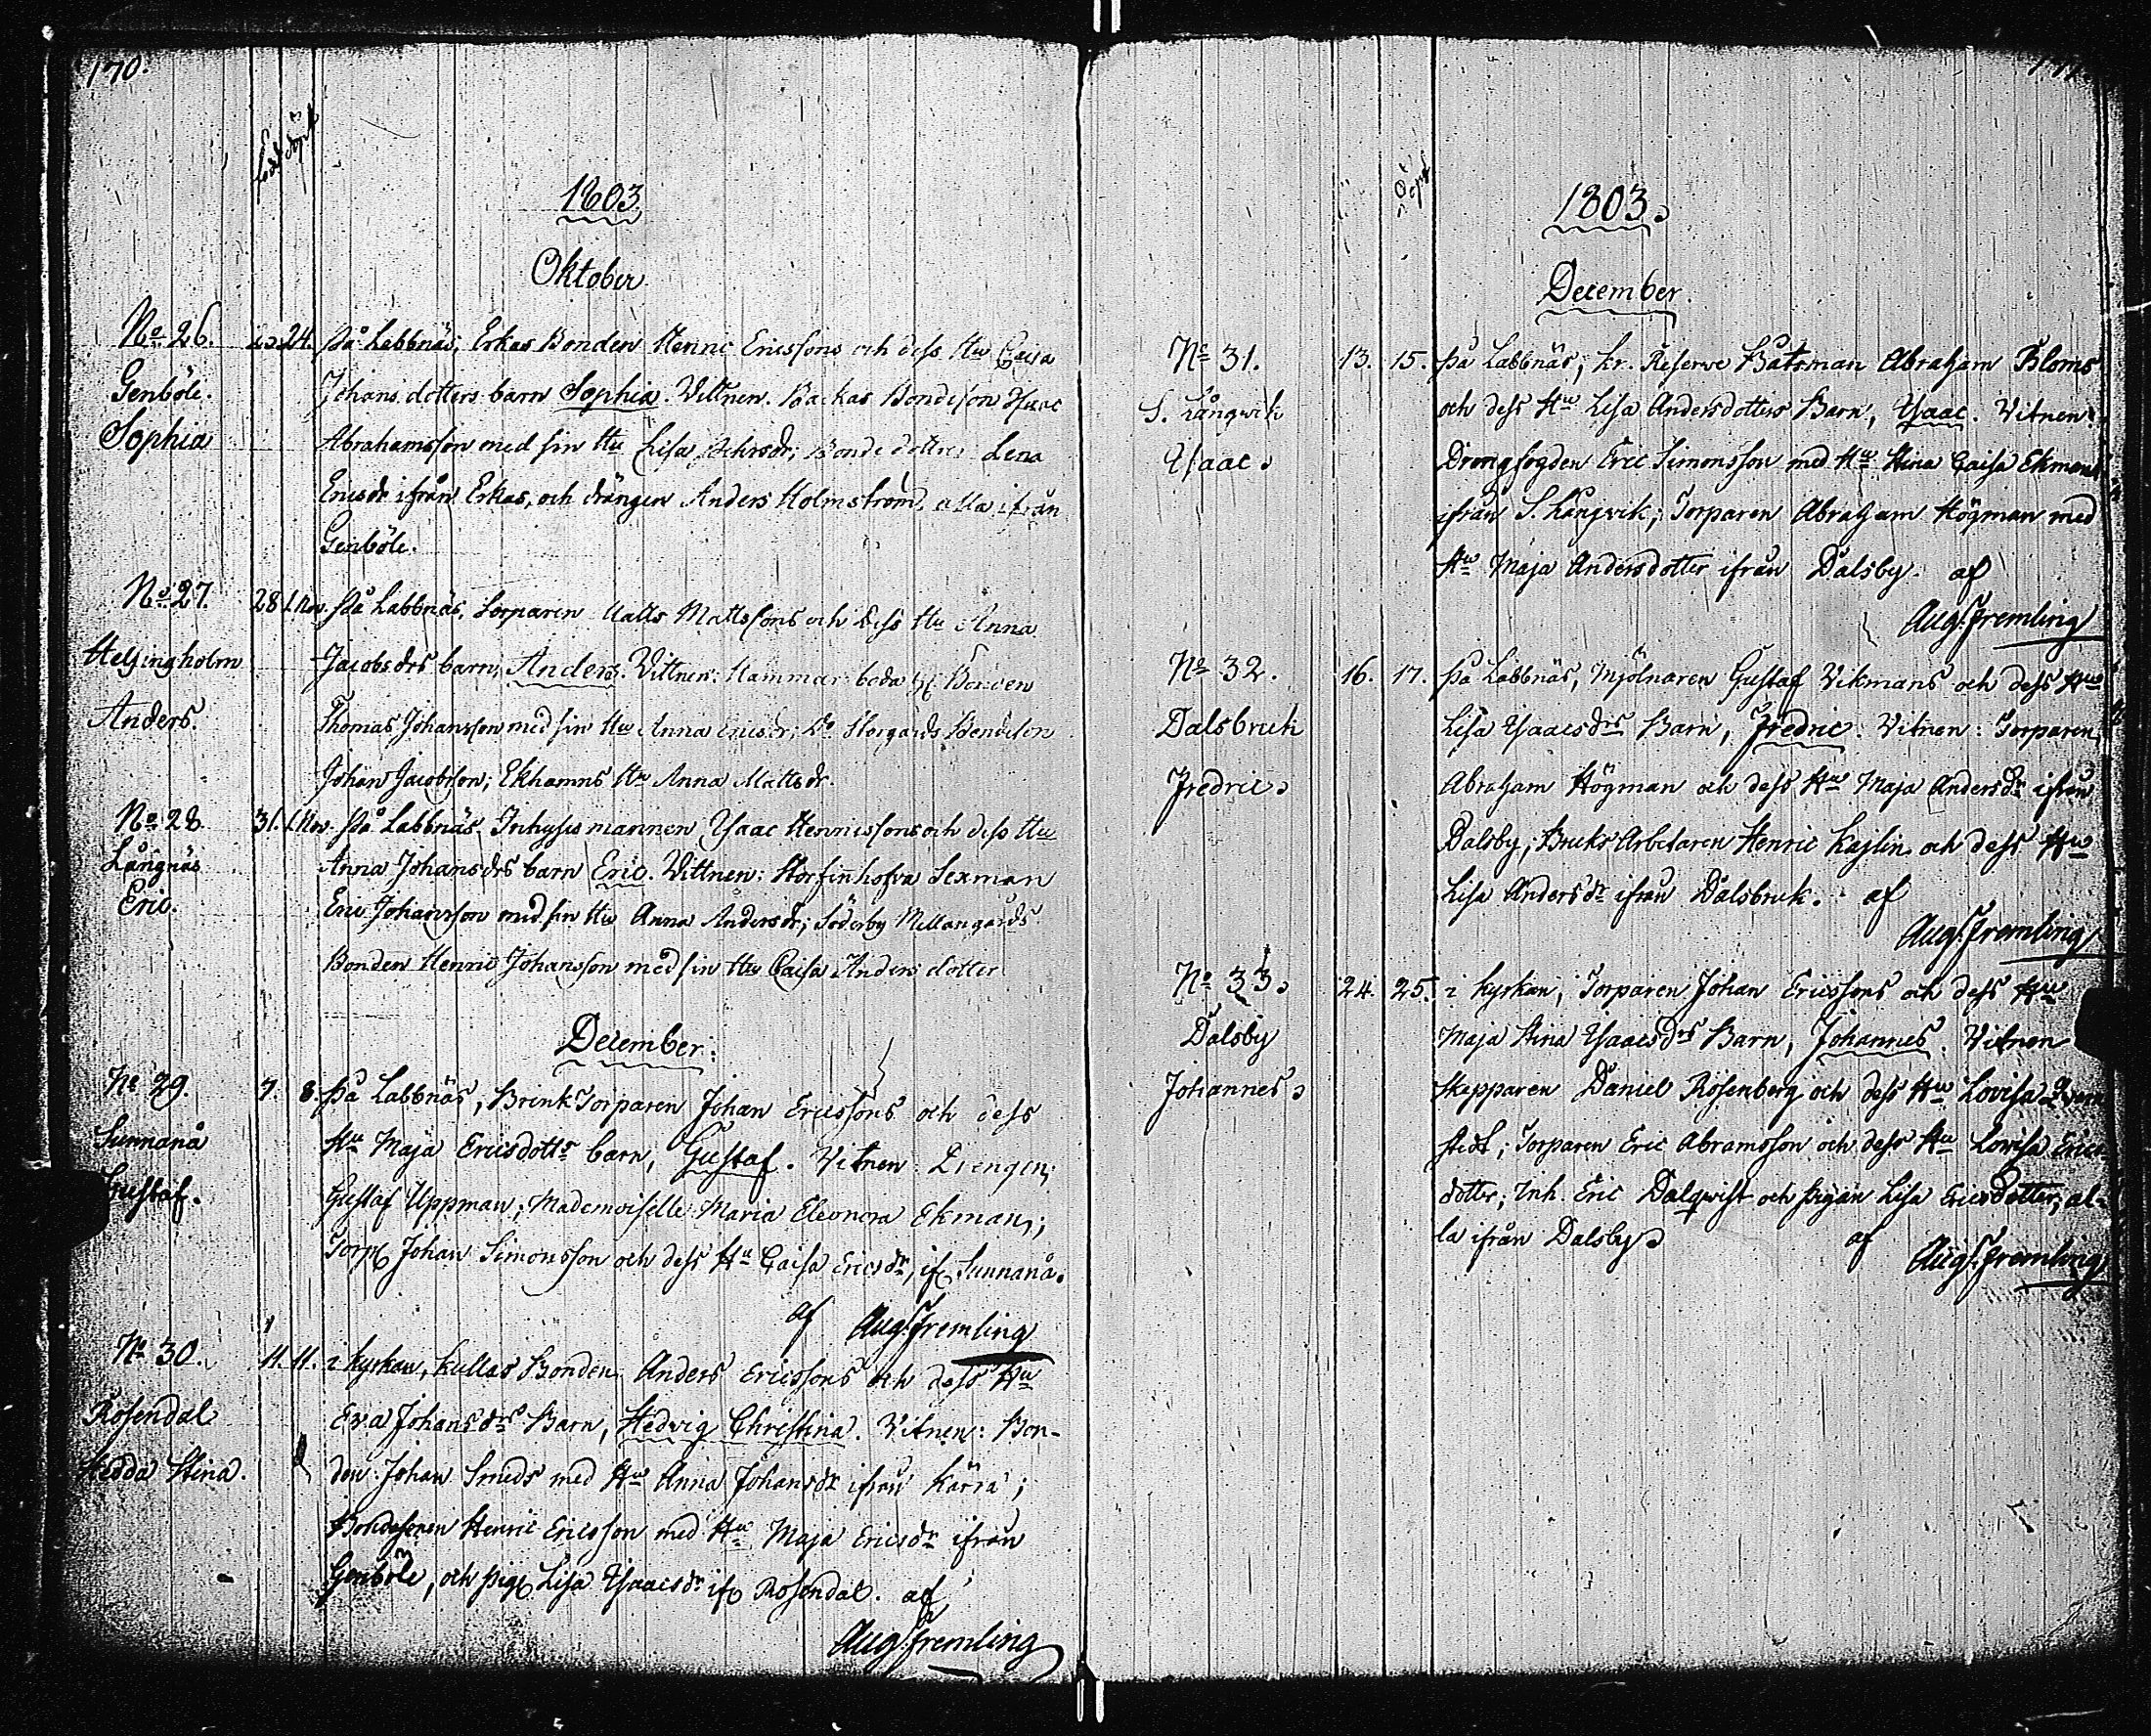 170.
född döpt
1803.
Oktober
No 26. 24. På Labbnäs, Erkas Bonden Henric Ericssons och dess Hu Caisa
Genböle. Johansdotters barn Sophia. Vittnen. Backas Bondeson Isaac
Sophia Abrahamsson med sin Hu Lisa Johrsdr; Bondedotter Lena
Ericsdr ifrån Erkas, och drängen Anders Holmström, alla ifrån
Genböle.
No 27. 28 1.Nov. På Labbnäs, Torparen Matts Mattssons och dess Hu Anna
Helsingholm Jacobsdrs barn, Anders. Vittnen: Hammarsboda Bonden
Anders. Thomas Johansson med sin Hu Anna Ericsdr; Do Storgårds Bondeson
Johan Jacobsson; Ekhamns Hu Anna Mattsdr.
No 28. 31. 1.Nov. På Labbnäs Inhyses mannen Isaac Henricssons och dess Hu
Långnäs Anna Johansdrs barn Eric. Vittnen: Storfinnhofva Sexman
Eric. Eric Johansson med sin Hu Anna Andersdr; Söderby Mellangårds
Bonden Henric Johansson med sin Hu Caisa Andersdotter
December.
No 29. 7. 8. På Labbnäs, Brink Torparen Johan Ericssons och dess
Sunnanå Hu Maja Ericsdottrs barn, Gustaf. Vitnen: Drengen
Gustaf. Gustaf Uppman; Mademoiselle Maria Eleonora Ekman;
Torp Johan Simonsson och dess Hu Caisa Ericsdr, if Sunnanå.
af Aug. Fremling
No 30. 11. 11. i kyrkan, Kullas Bonden Anders Ericssons och dess Hu
Rosendal Eva Johansdrs Barn, Hedvig Christina. Vitnen: Bon-
Hedda Stina. den Johan Smeds med Hu Anna Johansdr ifrån Kärra;
Bondesonen Henric Ericsson med Hu Maja Ericsdr ifrån
Genböle, och pig Lisa Isaacsdr if Rosendal. af
Aug. Fremling
171.
döpt
1803.
December.
No 31. 13. 15. På Labbnäs, Kr. Reserve Båtsman Abraham Bloms
S. Långwik och dess Hu Lisa Andersdotters Barn, Isaac. Vitnen:
Isaac. Drengfogden Eric Simonsson med Hu Stina Caisa Ekman
ifrån S. Långvik; Torparen Abraham Högman med
Hu Maja Andersdotter ifrån Dalsby. af
Aug. Fremling
No 32. 16. 17. På Labbnäs, Mjölnaren Gustaf Vikmans och dess Hu
Dalsbruk Lisa Isaacsdrs Barn, Fredric. Vitnen: Torparen
Fredric. Abraham Högman och dess Hu Maja Andersdr ifrån
Dalsby; Bruks Arbetaren Henric Kajlin och dess Hu
Lisa Andersdr ifrån Dalsbruk. af
Aug. Fremling
No 33. 24. 25. i kyrkan, Torparen Johan Ericssons och dess Hu
Dalsby Maja Stina Isaacsdrs Barn, Johannes. Vitnen
Johannes. Skepparen Daniel Rosenberg och dess Hu Lovisa
stedt; Torparen Eric Abramsson och dess Hu Lovisa Erics-
dotter; Inh. Eric Dalqwist och pigan Lisa Ericsdotter, al-
la ifrån Dalsby. af Aug. Fremling